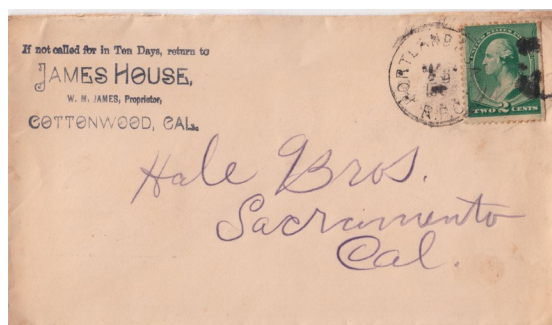 If not called for in Ten Days, return to
JAMES HOUSE,
W. M. JAMES, Proprietor,
COTTONWOOD, CAL.
PORTLAND
R.P.O.
UNITED STATES
TWO 2 CENTS
Hale Bros.
Sacramento
Cal.